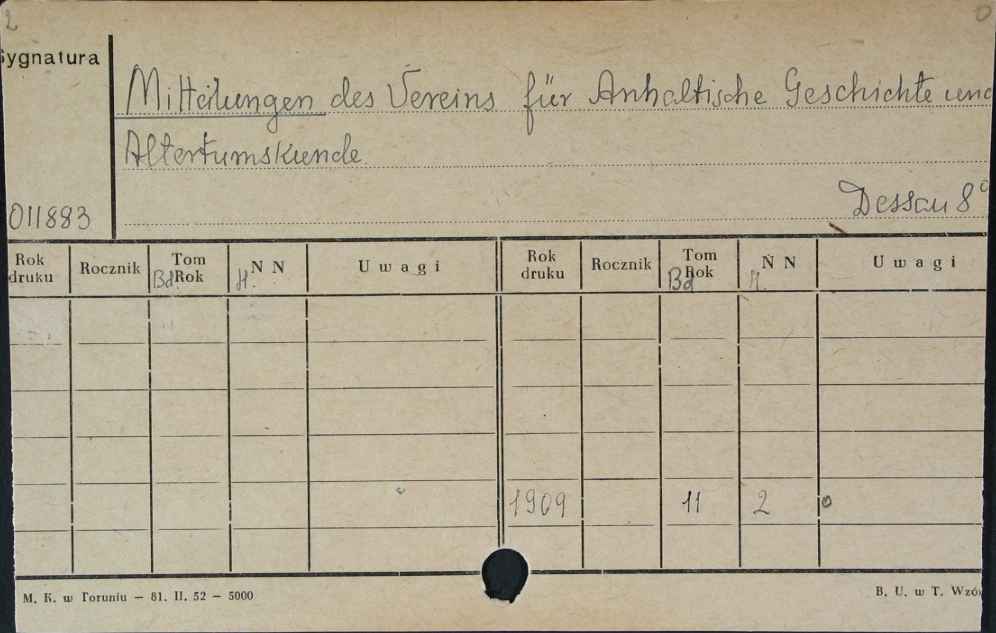 2 0
Sygnatura
Mitteilungen des Vereins für Anhaltische Geschichte und
Altertumskunde
Dessau 8°
011883
Rok druku Rocznik Tom Rok Bd N N H. Uwagi Rok druku Rocznik Tom Rok Bd N N H. Uwagi
1909 11 2 o
M. K. w Toruniu — 81. II. 52 — 5000 B. U. w T. Wzór